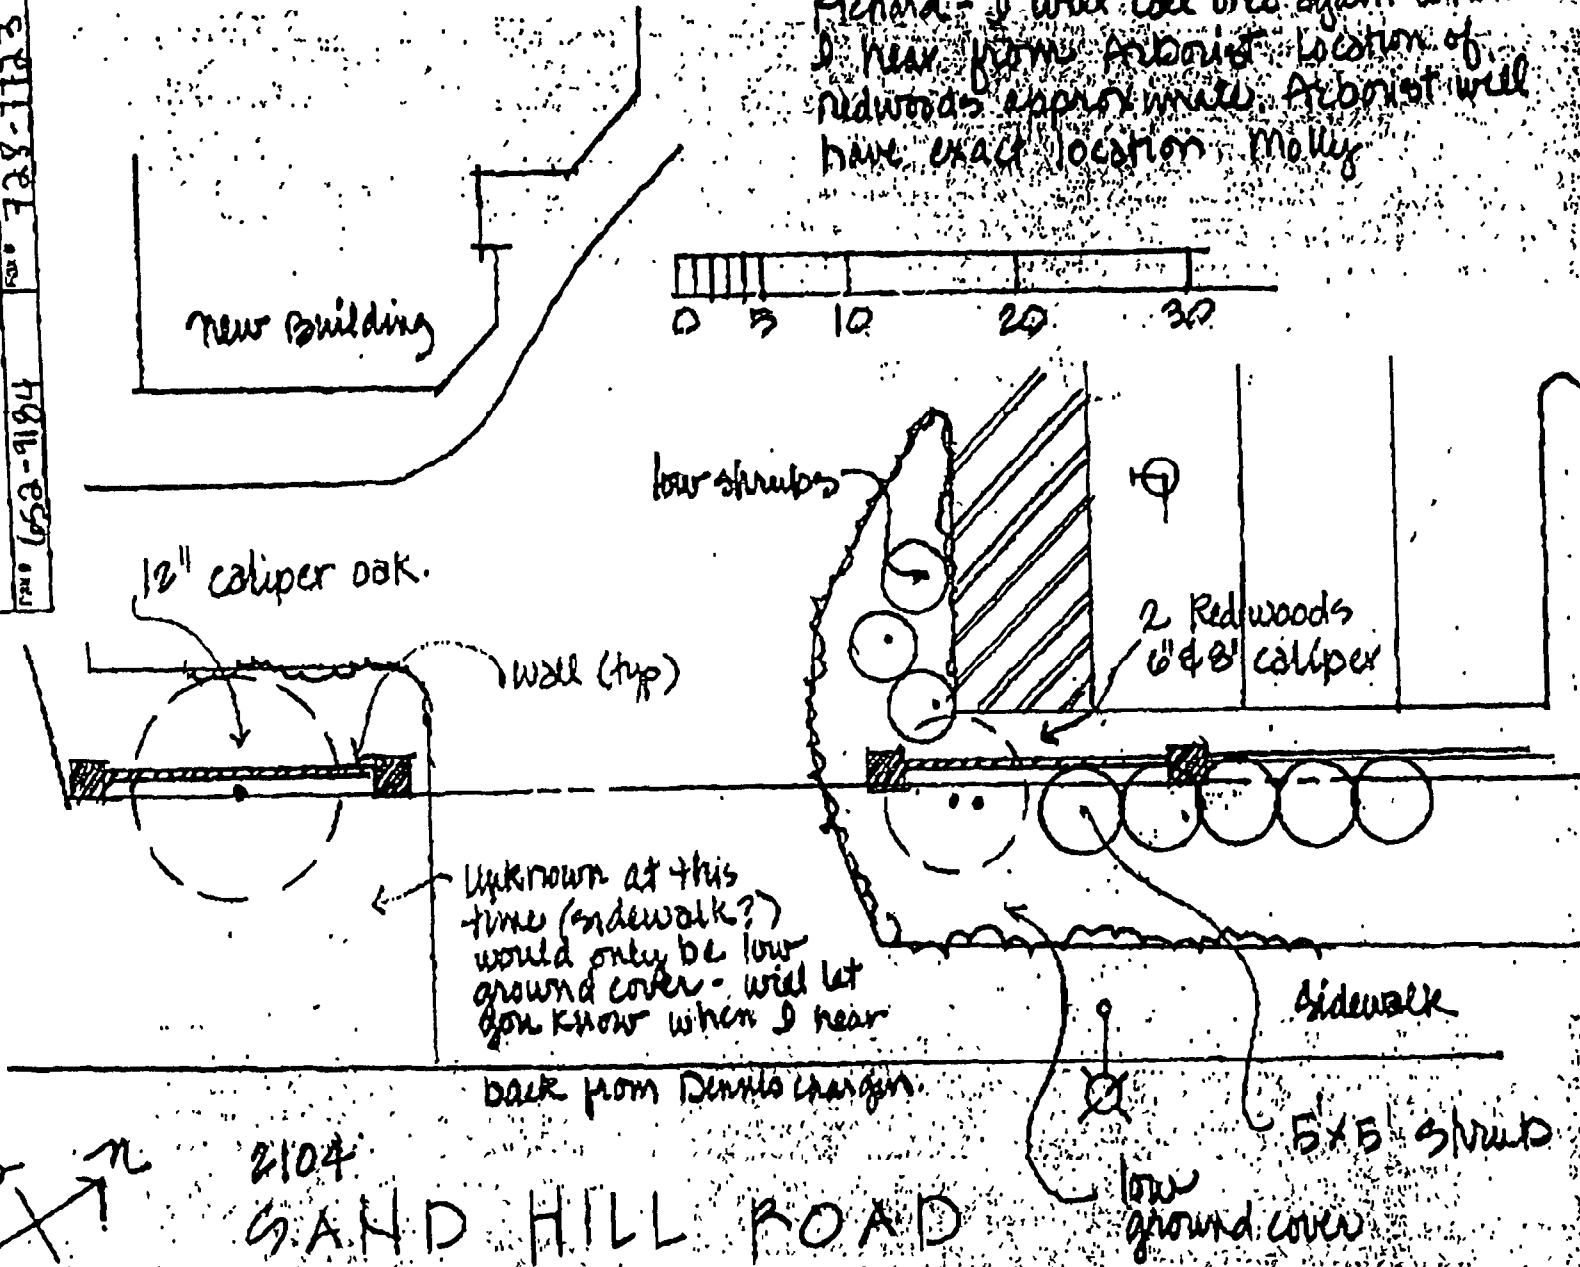 I will call you again when
I hear from Arborist. Location of
redwoods approximate. Arborist will
have exact location. Molly
Fax # 728-1123
Fax # 652-9184
0 5 10 20 30
New Building
low shrubs
12" caliper oak.
2 Redwoods
6" & 8" caliper
wall (typ)
Unknown at this
time (sidewalk?)
would only be low
ground cover - will let
you know when I hear
back from Dennis
Sidewalk
5'x5' shrub
low
ground cover
n
2104
SAND HILL ROAD